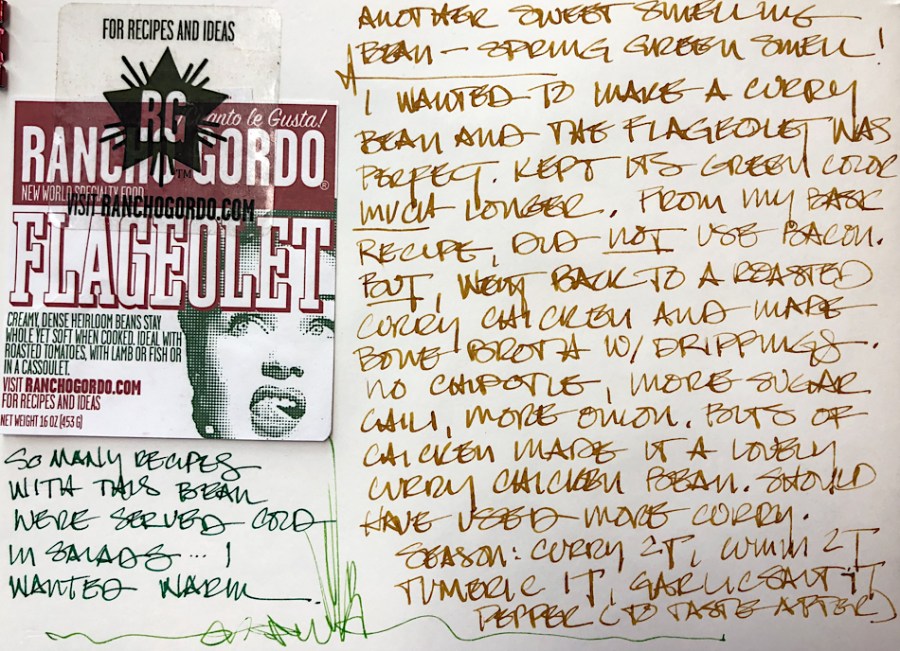 FOR RECIPES AND IDEAS
RG
Cuanto le Gusta!
RANCHO GORDO
NEW WORLD SPECIALTY FOOD
VISIT RANCHOGORDO.COM
FLAGEOLET
CREAMY, DENSE HEIRLOOM BEANS STAY
WHOLE YET SOFT WHEN COOKED. IDEAL WITH
ROASTED TOMATOES, WITH LAMB OR FISH OR
IN A CASSOULET.
VISIT RANCHOGORDO.COM
FOR RECIPES AND IDEAS
NET WEIGHT 16 OZ (453 G)
SO MANY RECIPES
WITH THIS BEAN
WERE SERVED COLD
IN SALADS... I
WANTED WARM.
ANOTHER SWEET SMELLING
BEAN - SPRING GREEN SMELL!
I WANTED TO MAKE A CURRY
BEAN AND THE FLAGEOLET WAS
PERFECT. KEPT ITS GREEN COLOR
MUCH LONGER. FROM MY BASIC
RECIPE, DID NOT USE BACON.
BUT, WENT BACK TO A ROASTED
CURRY CHICKEN AND MADE
BONE BROTH W/ DRIPPINGS.
NO CHIPOTLE, MORE SUGAR
CHILI, MORE ONION. BITS OF
CHICKEN MADE IT A LOVELY
CURRY CHICKEN BEAN. SHOULD
HAVE USED MORE CURRY.
SEASON: CURRY 2T, CUMIN 2T
TUMERIC 1T, GARLIC SALT 1T
PEPPER (TO TASTE AFTER)